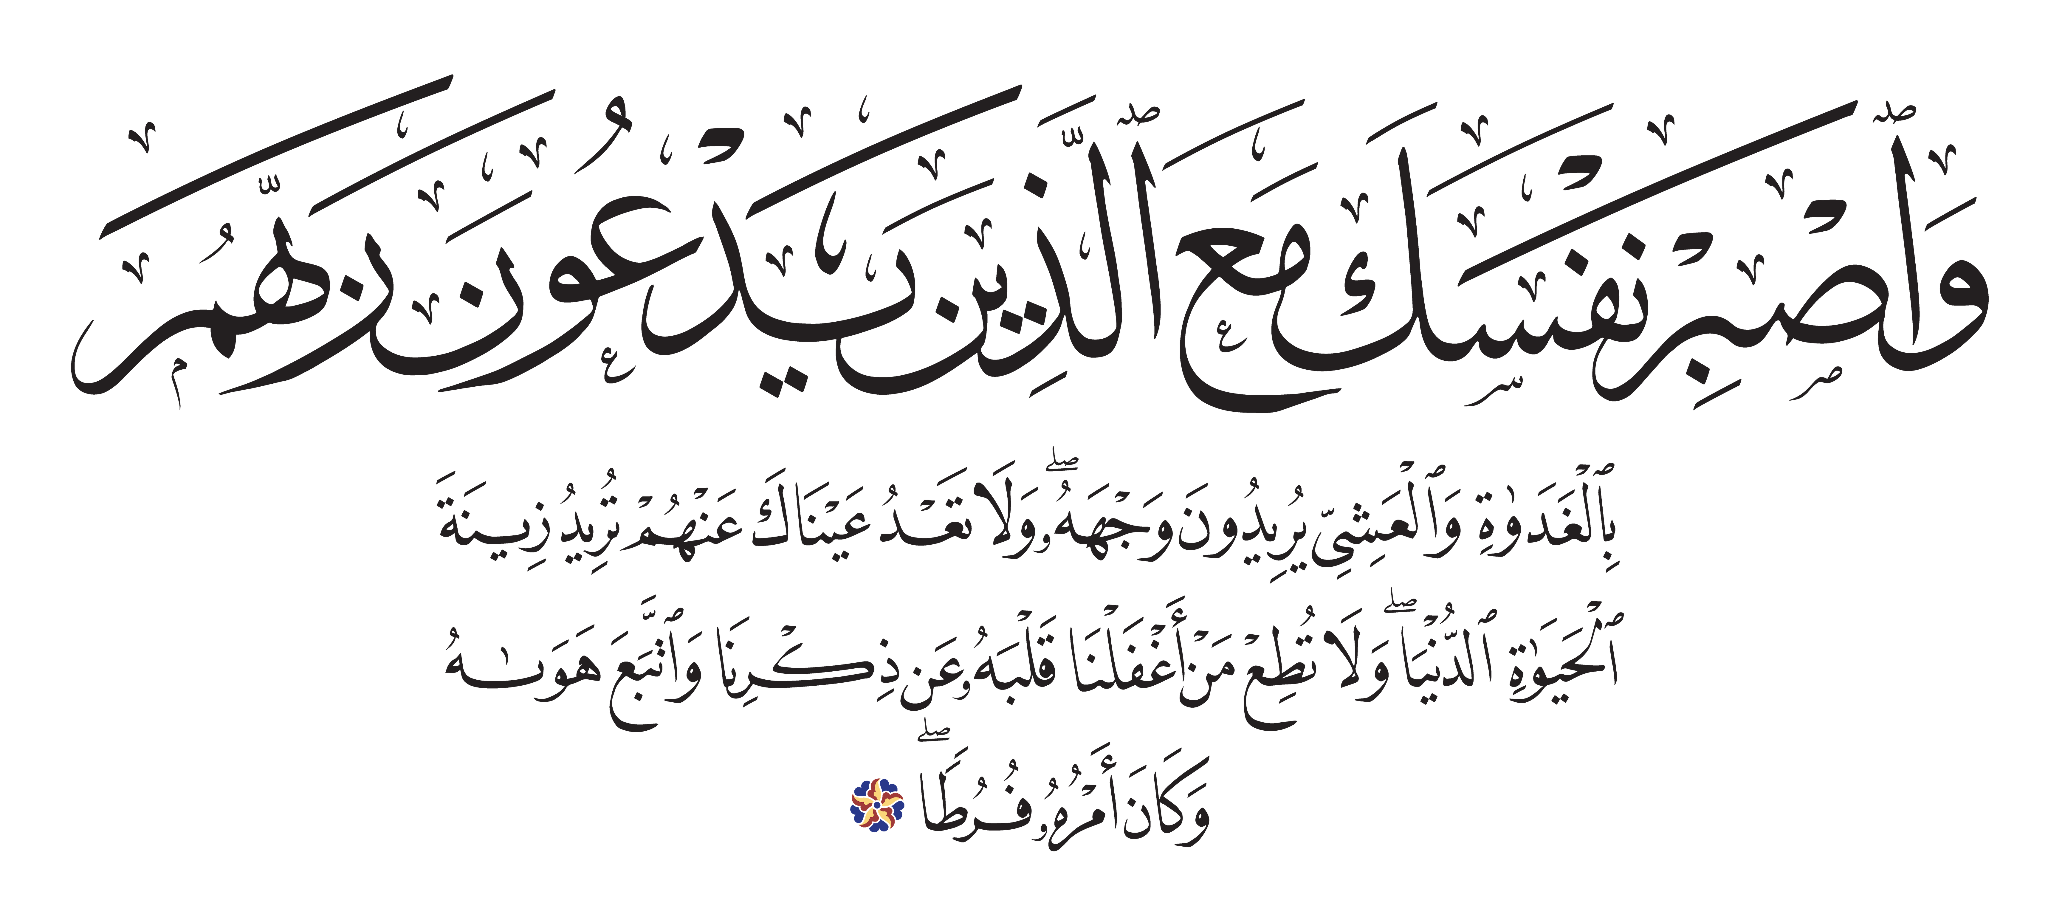 وَٱصْبِرْ نَفْسَكَ مَعَ ٱلَّذِينَ يَدْعُونَ رَبَّهُم
بِٱلْغَدَوٰةِ وَٱلْعَشِىِّ يُرِيدُونَ وَجْهَهُۥ ۖ وَلَا تَعْدُ عَيْنَاكَ عَنْهُمْ تُرِيدُ زِينَةَ
ٱلْحَيَوٰةِ ٱلدُّنْيَا ۖ وَلَا تُطِعْ مَنْ أَغْفَلْنَا قَلْبَهُۥ عَن ذِكْرِنَا وَٱتَّبَعَ هَوَىٰهُ
وَكَانَ أَمْرُهُۥ فُرُطًا ۖ